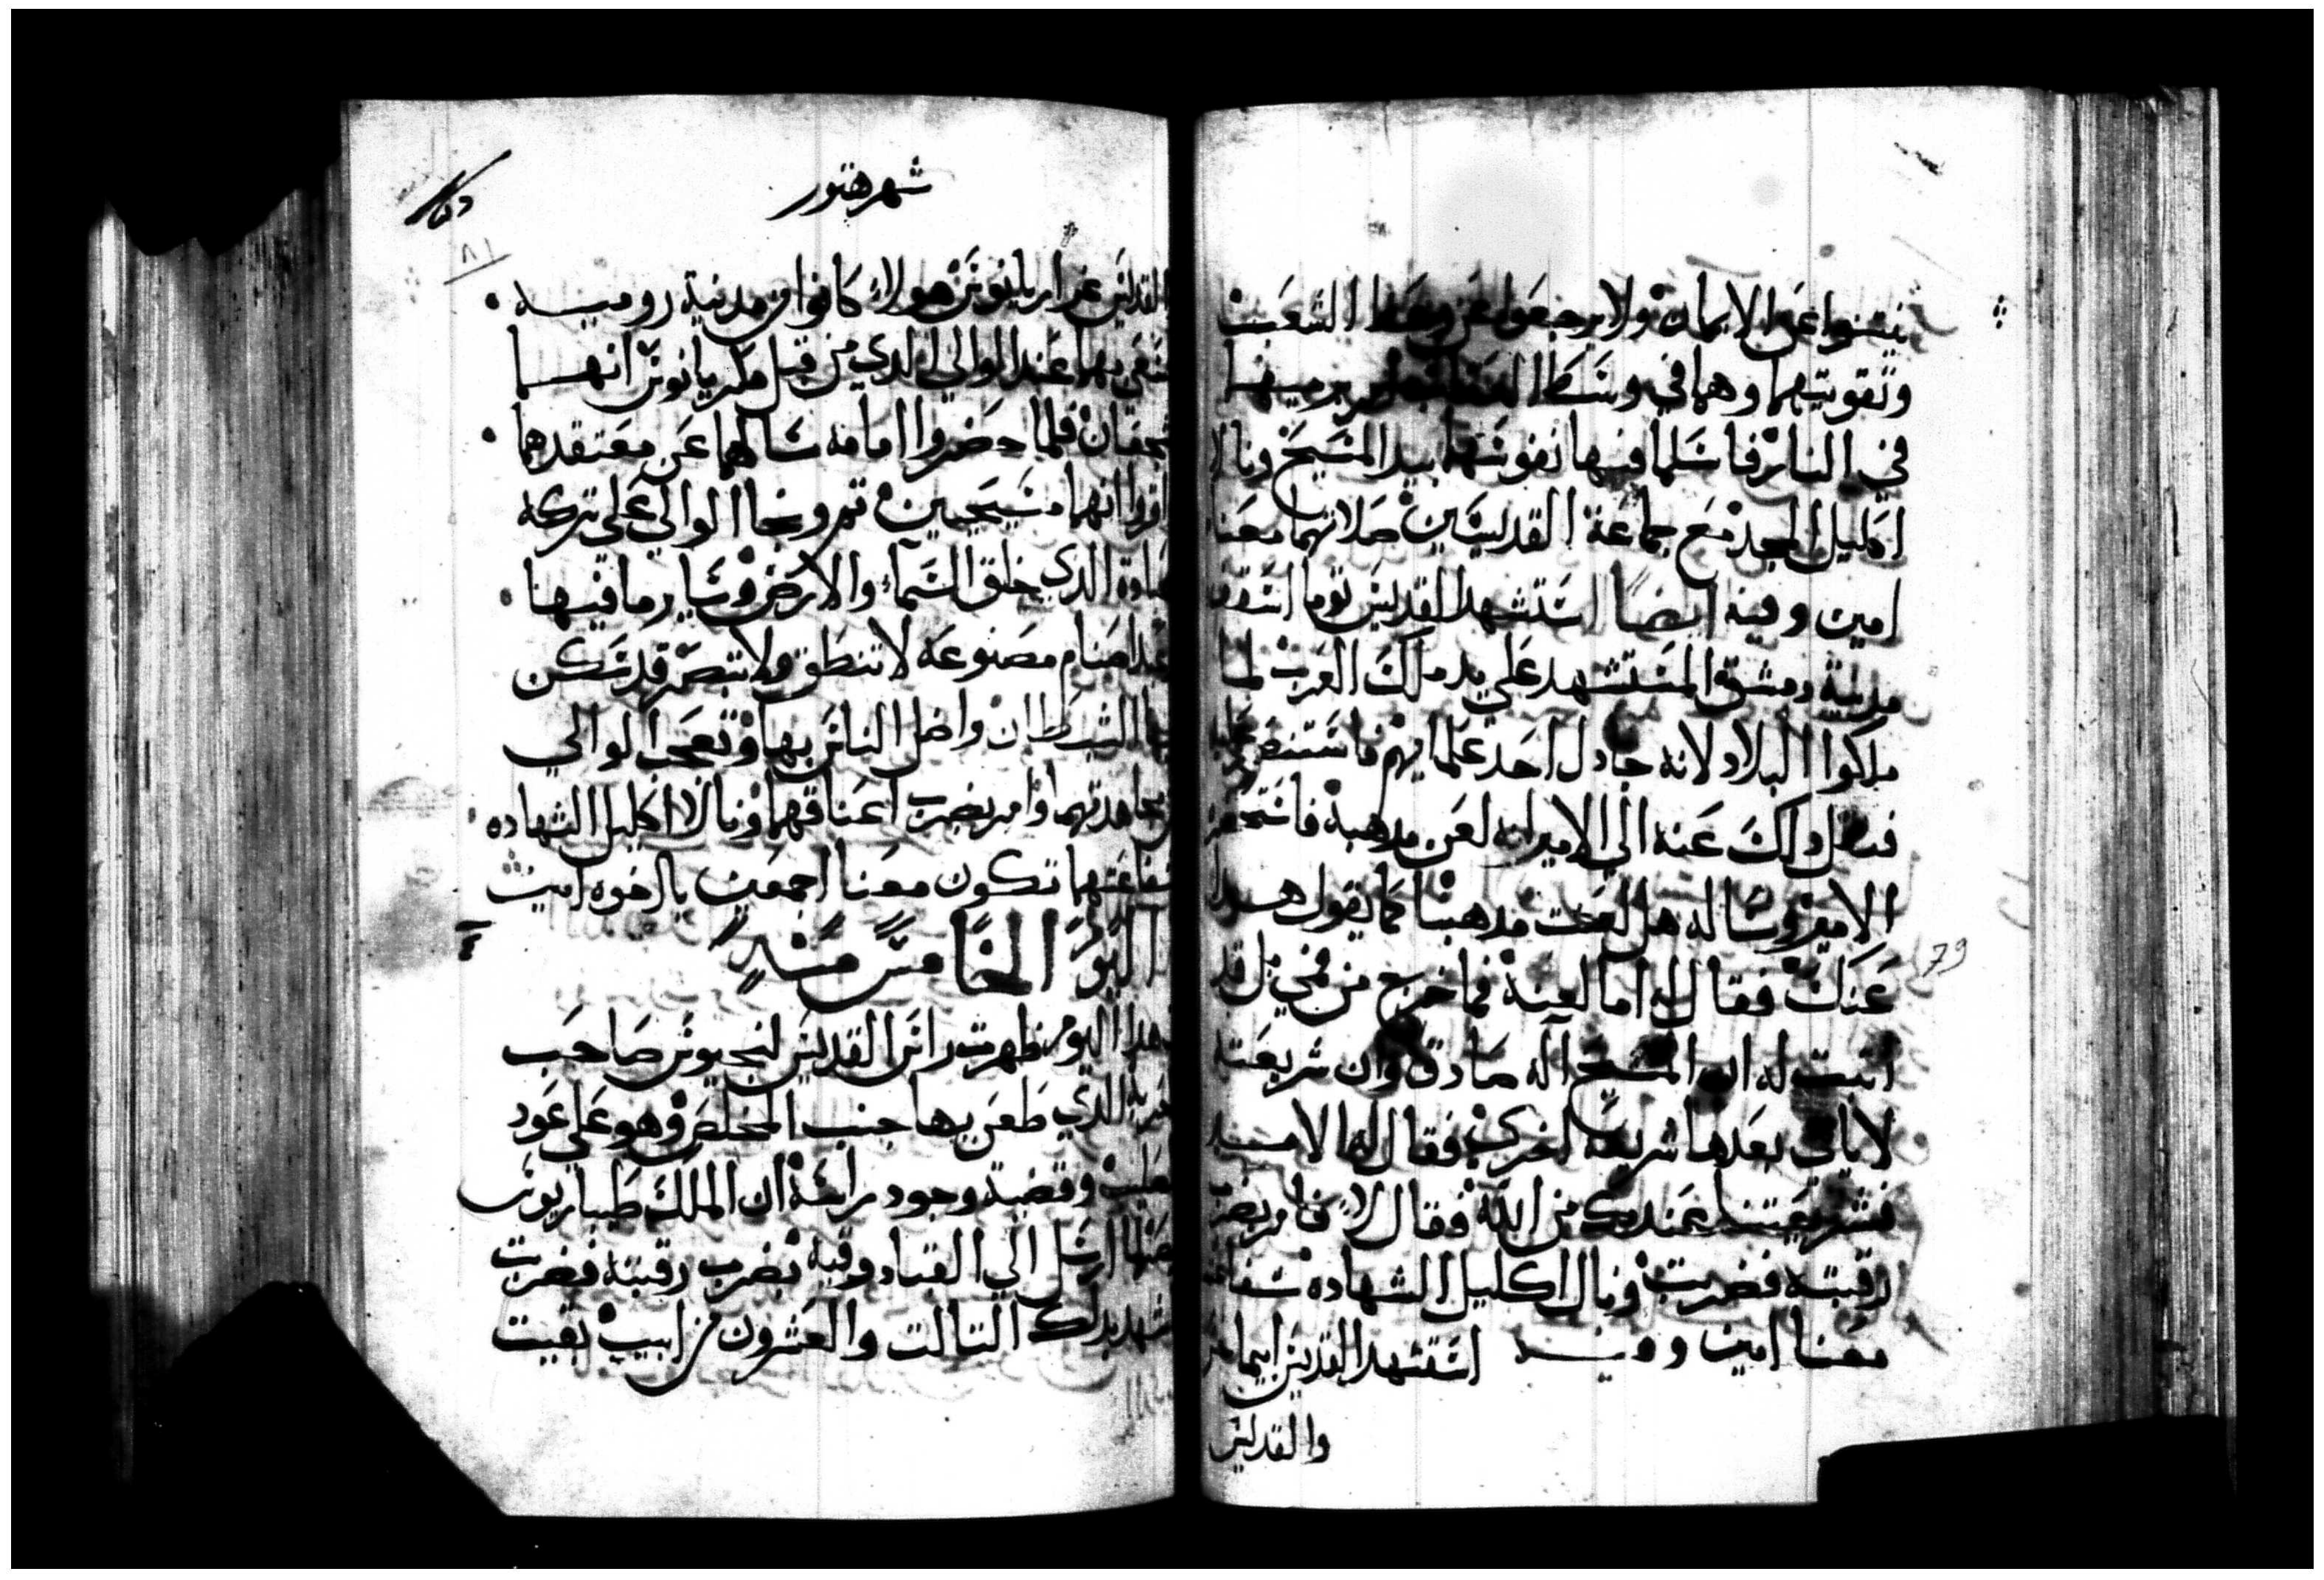 ينتنوا عن الايمان ولا يرجعوا عن وعظ الشعب
وتقويتهما وهما في وسط برميهما
في النار فاسلما فيها نفوسهما بيد المسيح ونالا
اكليل المجد مع جماعة القديسين صلاتهما معنا
امين وفيه ايضاً استشهد القديس توما اسقف
مدينة دمشق المستشهد علي يد ملك العرب لما
ملكوا البلاد لانه جادل احد علمايهم فاستنصر عليه
فنقل ذلك عنه الي الامير انه لعن مدهبه فاستحضره
الامير وساله هل لعنت مدهبنا كما يقول هذا
عنك فقال له اما لعنة فما خرج من فمي بل قد
اتبت له ان المسيح اله صادق وان شريعته
لا ياتي بعدها شريعه اخري فقال له الامير
فشريعتنا عندك من الله فقال لا فامر بضرب
رقبته فضربت ونال اكليل الشهاده شفاعته
معنا امين وفيه استشهد القديس ابيماخس
والقديس
شهر هتور
٨١
القديس عزاريانوس هولاء كانوا من مدينة روميه
فسعي بهما عند الوالي الدي من قبل مكريانوس انهما
فلما حضروا امامه سالهما عن معتقدهما
اقروا انهما مسيحيين تم وبخا الوالي علي تركه
عبادة الدي خلق السماء والارض وساير ما فيهما
عبد اصنام مصنوعه لا تنطق ولا تبصر قد سكن
بها الشيطان واضل الناس بها وتعجب الوالي
من مجاهدتهما وامر بضرب اعناقهما ونالا اكليل الشهاده
شفاعتهما تكون معنا اجمعين يا اخوه امين
اليوم الخامس منه
هدا اليوم ظهرت راس القديس لنجينوس صاحب
الحربه الدي طعن بها جنب المخلص وهو علي عود
الصليب وقضية وجود راسه ان الملك طيباريوس
ارسل الي القبادوقيه بضرب رقبته فضربت
شهد بدلك التالت والعشرون من ابيب بقيت
79